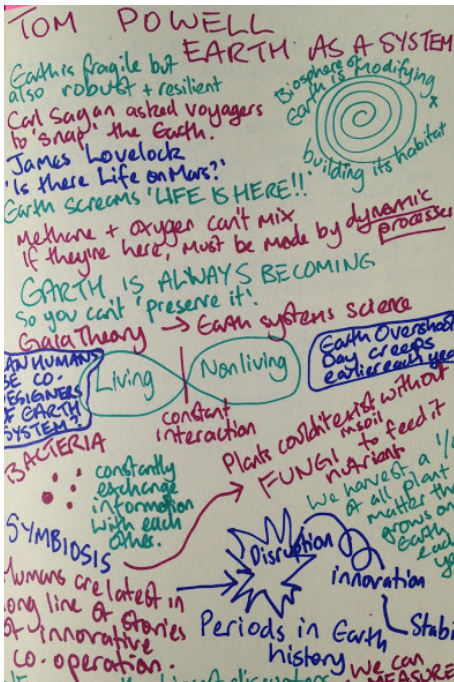 TOM POWELL
EARTH AS A SYSTEM
Earth is fragile but
also robust + resilient
Carl Sagan asked voyagers
to 'snap' the Earth.
James Lovelock
'Is there Life on Mars?'
Earth screams 'LIFE IS HERE!!'
Biosphere of
Earth is modifying
+
building its habitat
Methane + oxygen can't mix
if they're here, must be made by dynamic
processes
EARTH IS ALWAYS BECOMING
so you can't 'preserve it'.
Gaia Theory → Earth systems science
AN HUMANS
BE CO-
ESIGNERS
OF EARTH
SYSTEM?
Living
Nonliving
constant
interaction
Earth Overshoot
Day creeps
earlier each year
BACTERIA
constantly
exchange
information
with each
other.
Plants couldn't exist without
FUNGI insoil to feed it
nutrient
We harvest a 1/
of all plant
matter tha
grows on
Earth
each
ye
SYMBIOSIS
Humans are latest in
ong line of stories
of innovative
co-operation.
Disruption
innovation
Stabi
Periods in Earth
history
We can
MEASURE